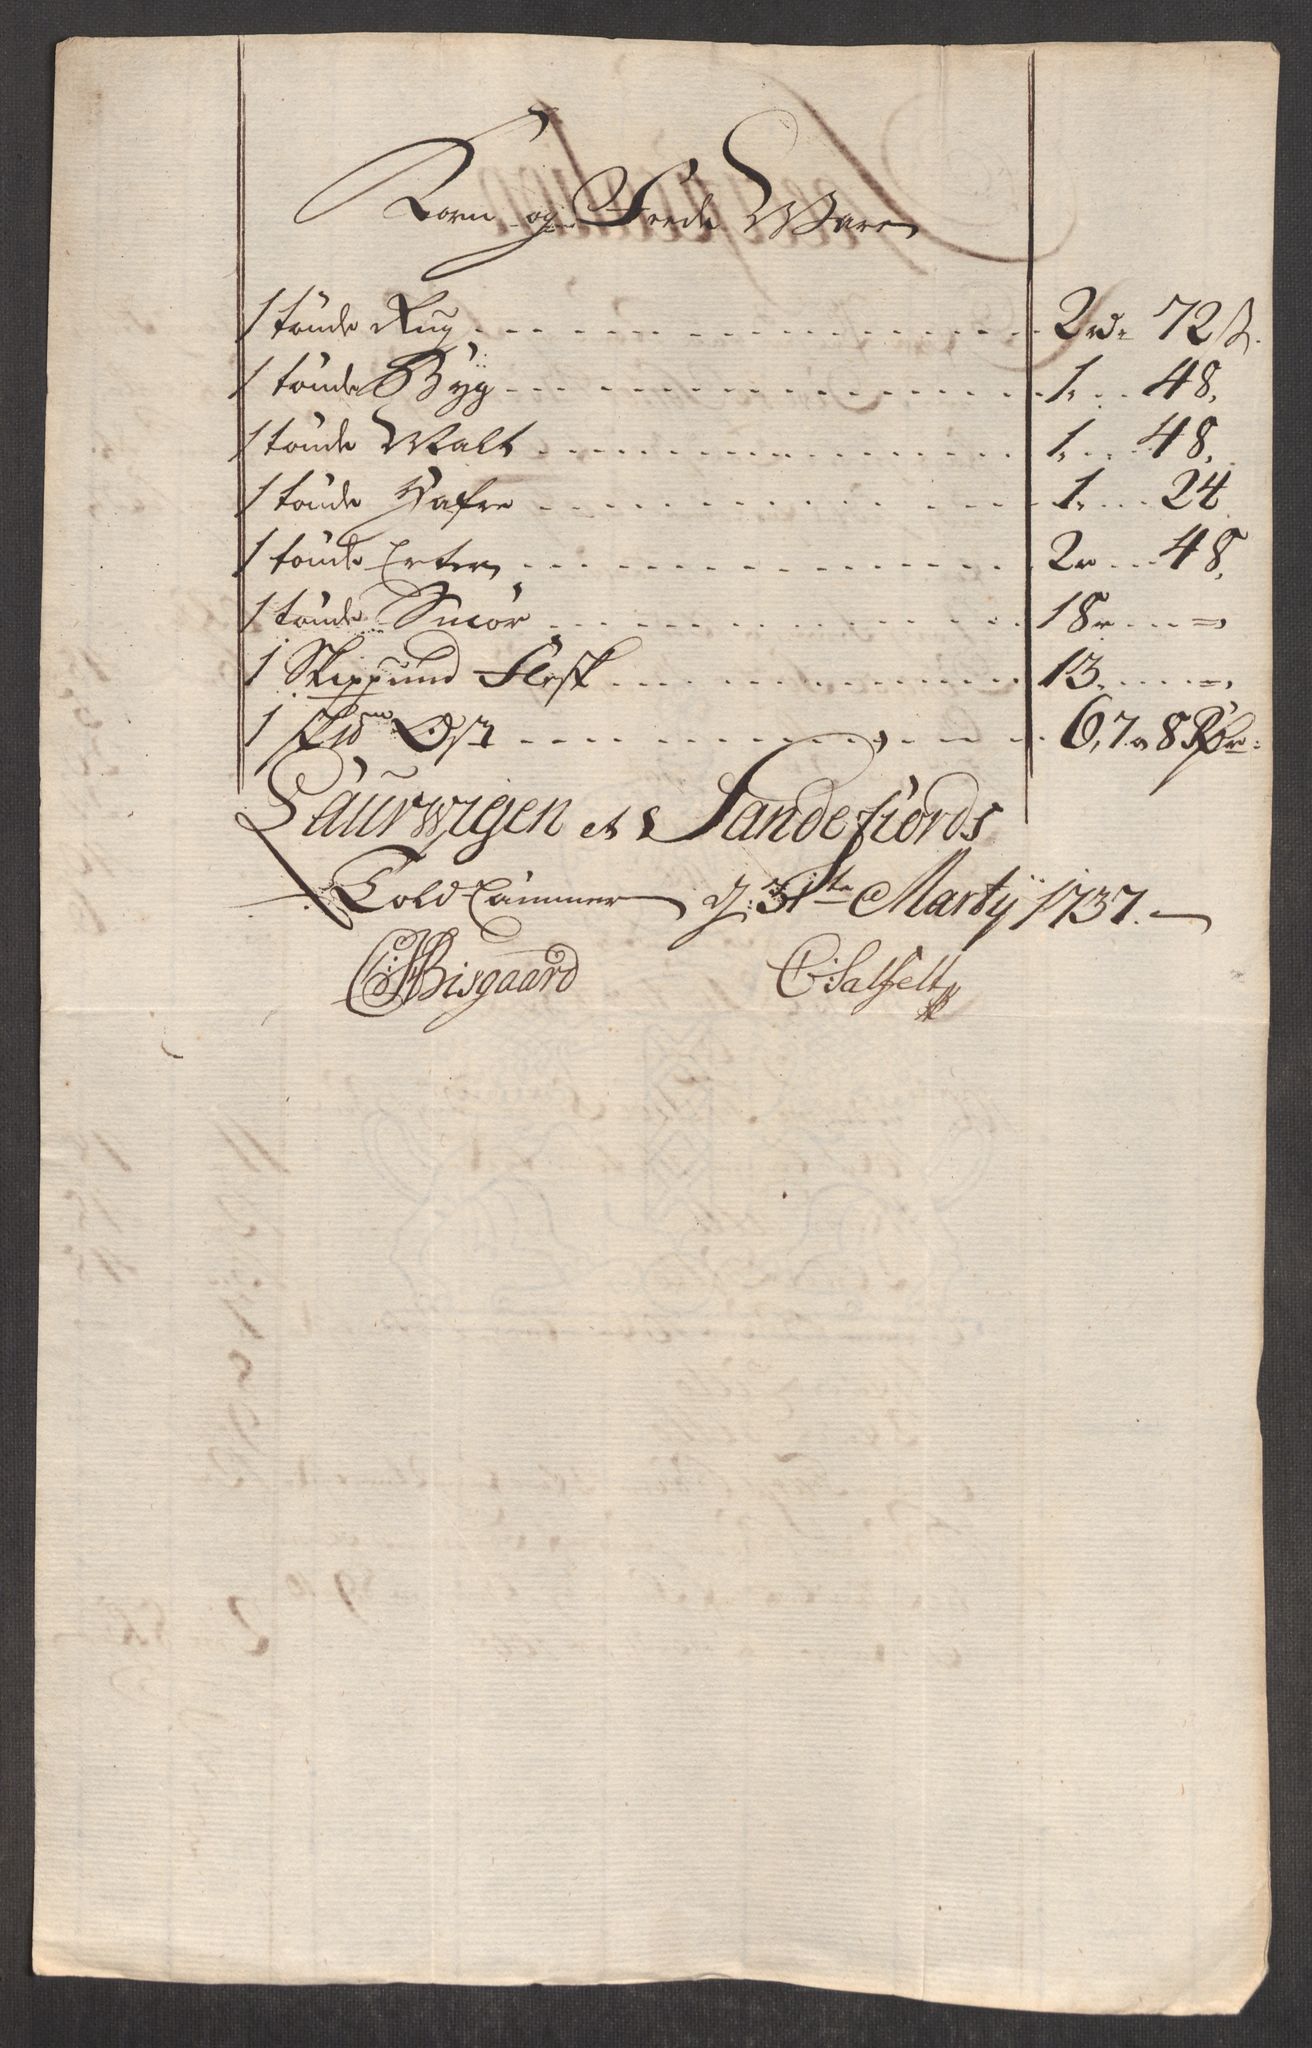 Korn og Feede Ware
1 tønde Rug 2 rd. 72 ß.
1 tønde Byg 1. 48.
1 tønde Malt 1. 48.
1 tønde Hafre 1. 24
1 tønde Erter 2 r 48.
1 tønde Smör 18 r =
1 Skippund Flesk 13. =
1 Ost 6, 7 a 8
Laurwigen et Sandefiords
Told Cammer d: 31te Martij 1737.
Bisgaard C: Salfelt